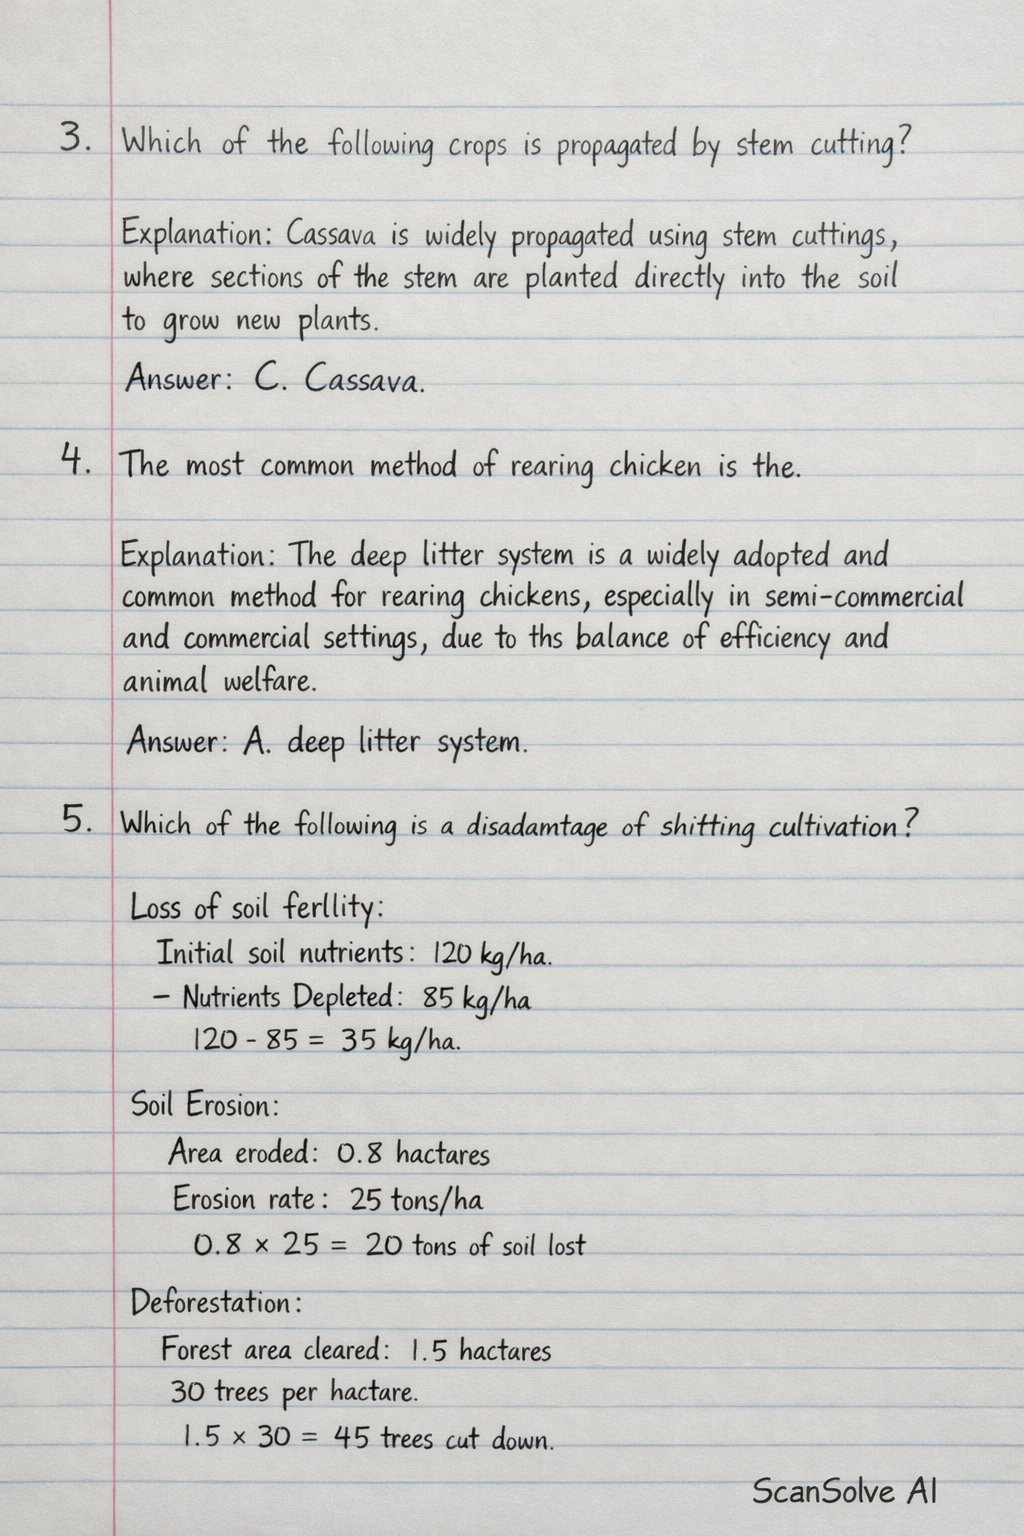 3. Which of the following crops is propagated by stem cutting?
Explanation: Cassava is widely propagated using stem cuttings,
where sections of the stem are planted directly into the soil
to grow new plants.
Answer: C. Cassava.
4. The most common method of rearing chicken is the.
Explanation: The deep litter system is a widely adopted and
common method for rearing chickens, especially in semi-commercial
and commercial settings, due to ths balance of efficiency and
animal welfare.
Answer: A. deep litter system.
5. Which of the following is a disadamtage of shitting cultivation?
Loss of soil ferllity:
Initial soil nutrients: 120 kg/ha.
– Nutrients Depleted: 85 kg/ha
120 - 85 = 35 kg/ha.
Soil Erosion:
Area eroded: 0.8 hactares
Erosion rate: 25 tons/ha
0.8 × 25 = 20 tons of soil lost
Deforestation:
Forest area cleared: 1.5 hactares
30 trees per hactare.
1.5 × 30 = 45 trees cut down.
ScanSolve AI